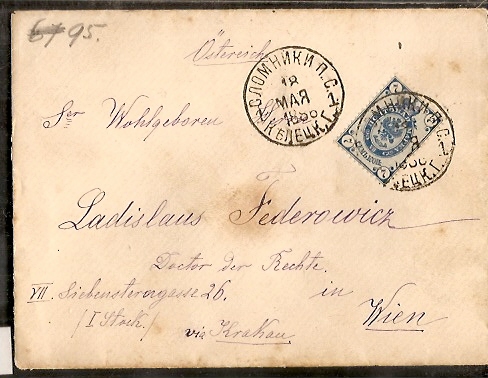 67 95.
Österreich
СЛОМНИКИ П.С.
18
МАЯ
188
КѢЛЕЦК.Г.
7
7
7
Sr Wohlgeboren
Ladislaus Federowicz
Doctor der Rechte.
VII. Siebensterngasse 26. in
(I Stock.) Wien
via Krakau.